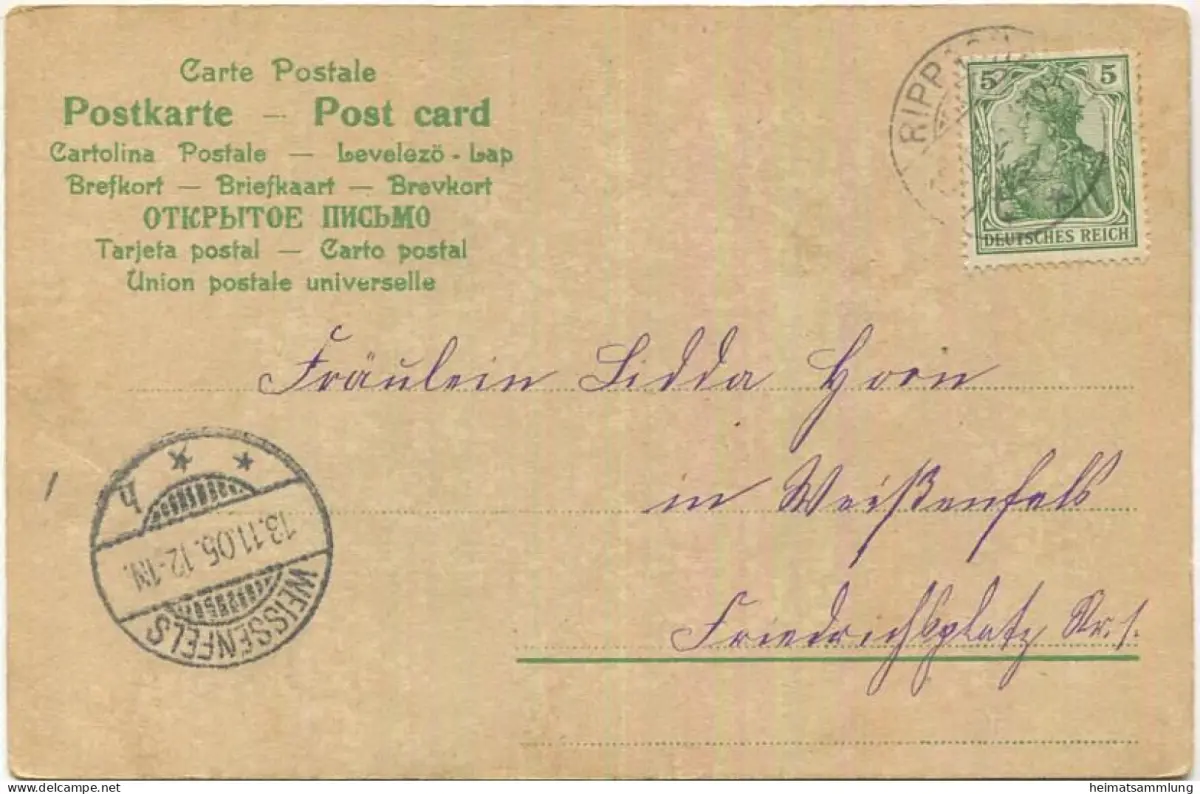 Carte Postale
Postkarte — Post card
Cartolina Postale — Levelezö - Lap
Brefkort — Briefkaart — Brevkort
ОТКРЫТОЕ ПИСЬМО
Tarjeta postal — Carto postal
Union postale universelle
RIPPACH
5 5
DEUTSCHES REICH
Fräulein Lidda Horn
in Weißenfels
Friedrichsplatz Nr. 1.
h
13.11.05.12-1N.
WEISSENFELS
https://www.delcampe.net
heimatsammlung